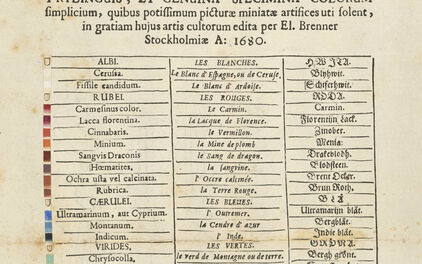 simplicium, quibus potissimum picturæ miniatæ artifices uti solent,
in gratiam hujus artis cultorum edita per El. Brenner
Stockholmiæ A: 1680.
ALBI. LES BLANCHES. HWJTA.
Cerusa. Le Blanc d'Espagne, ou de Ceruse, Blyhwit.
Fissile candidum. Le Blanc d'Ardoise. Schiferhwit.
RUBEI. LES ROUGES. RÖDA.
Carmesinus color. Le Carmin. Carmin.
Lacca florentina. la Lacque de Florence. Florentijn Lack.
Cinnabaris. le Vermillon. Zinober.
Minium. la Mine de plomb Menia:
Sangvis Draconis le Sang de dragon. Drakeblodh.
Hœmatites, la sangvine. Blodsteen.
Ochra usta vel calcinata. l'Occre calcinée. Brent Ocker.
Rubrica. la Terre Rouge. Brun Roth.
CÆRULEI. LES BLEUES. BLÅ
Ultramarinum, aut Cyprium. l'Outremer. Ultramarijn blåt.
Montanum. la Cendre d'azur Bergblåt.
Indicum. l'Inde. Indic blåt.
VIRIDES. LES VERTES. GRÖNA.
Chrysocolla. le verd de Montagne ou de terre. Bergh grönt.